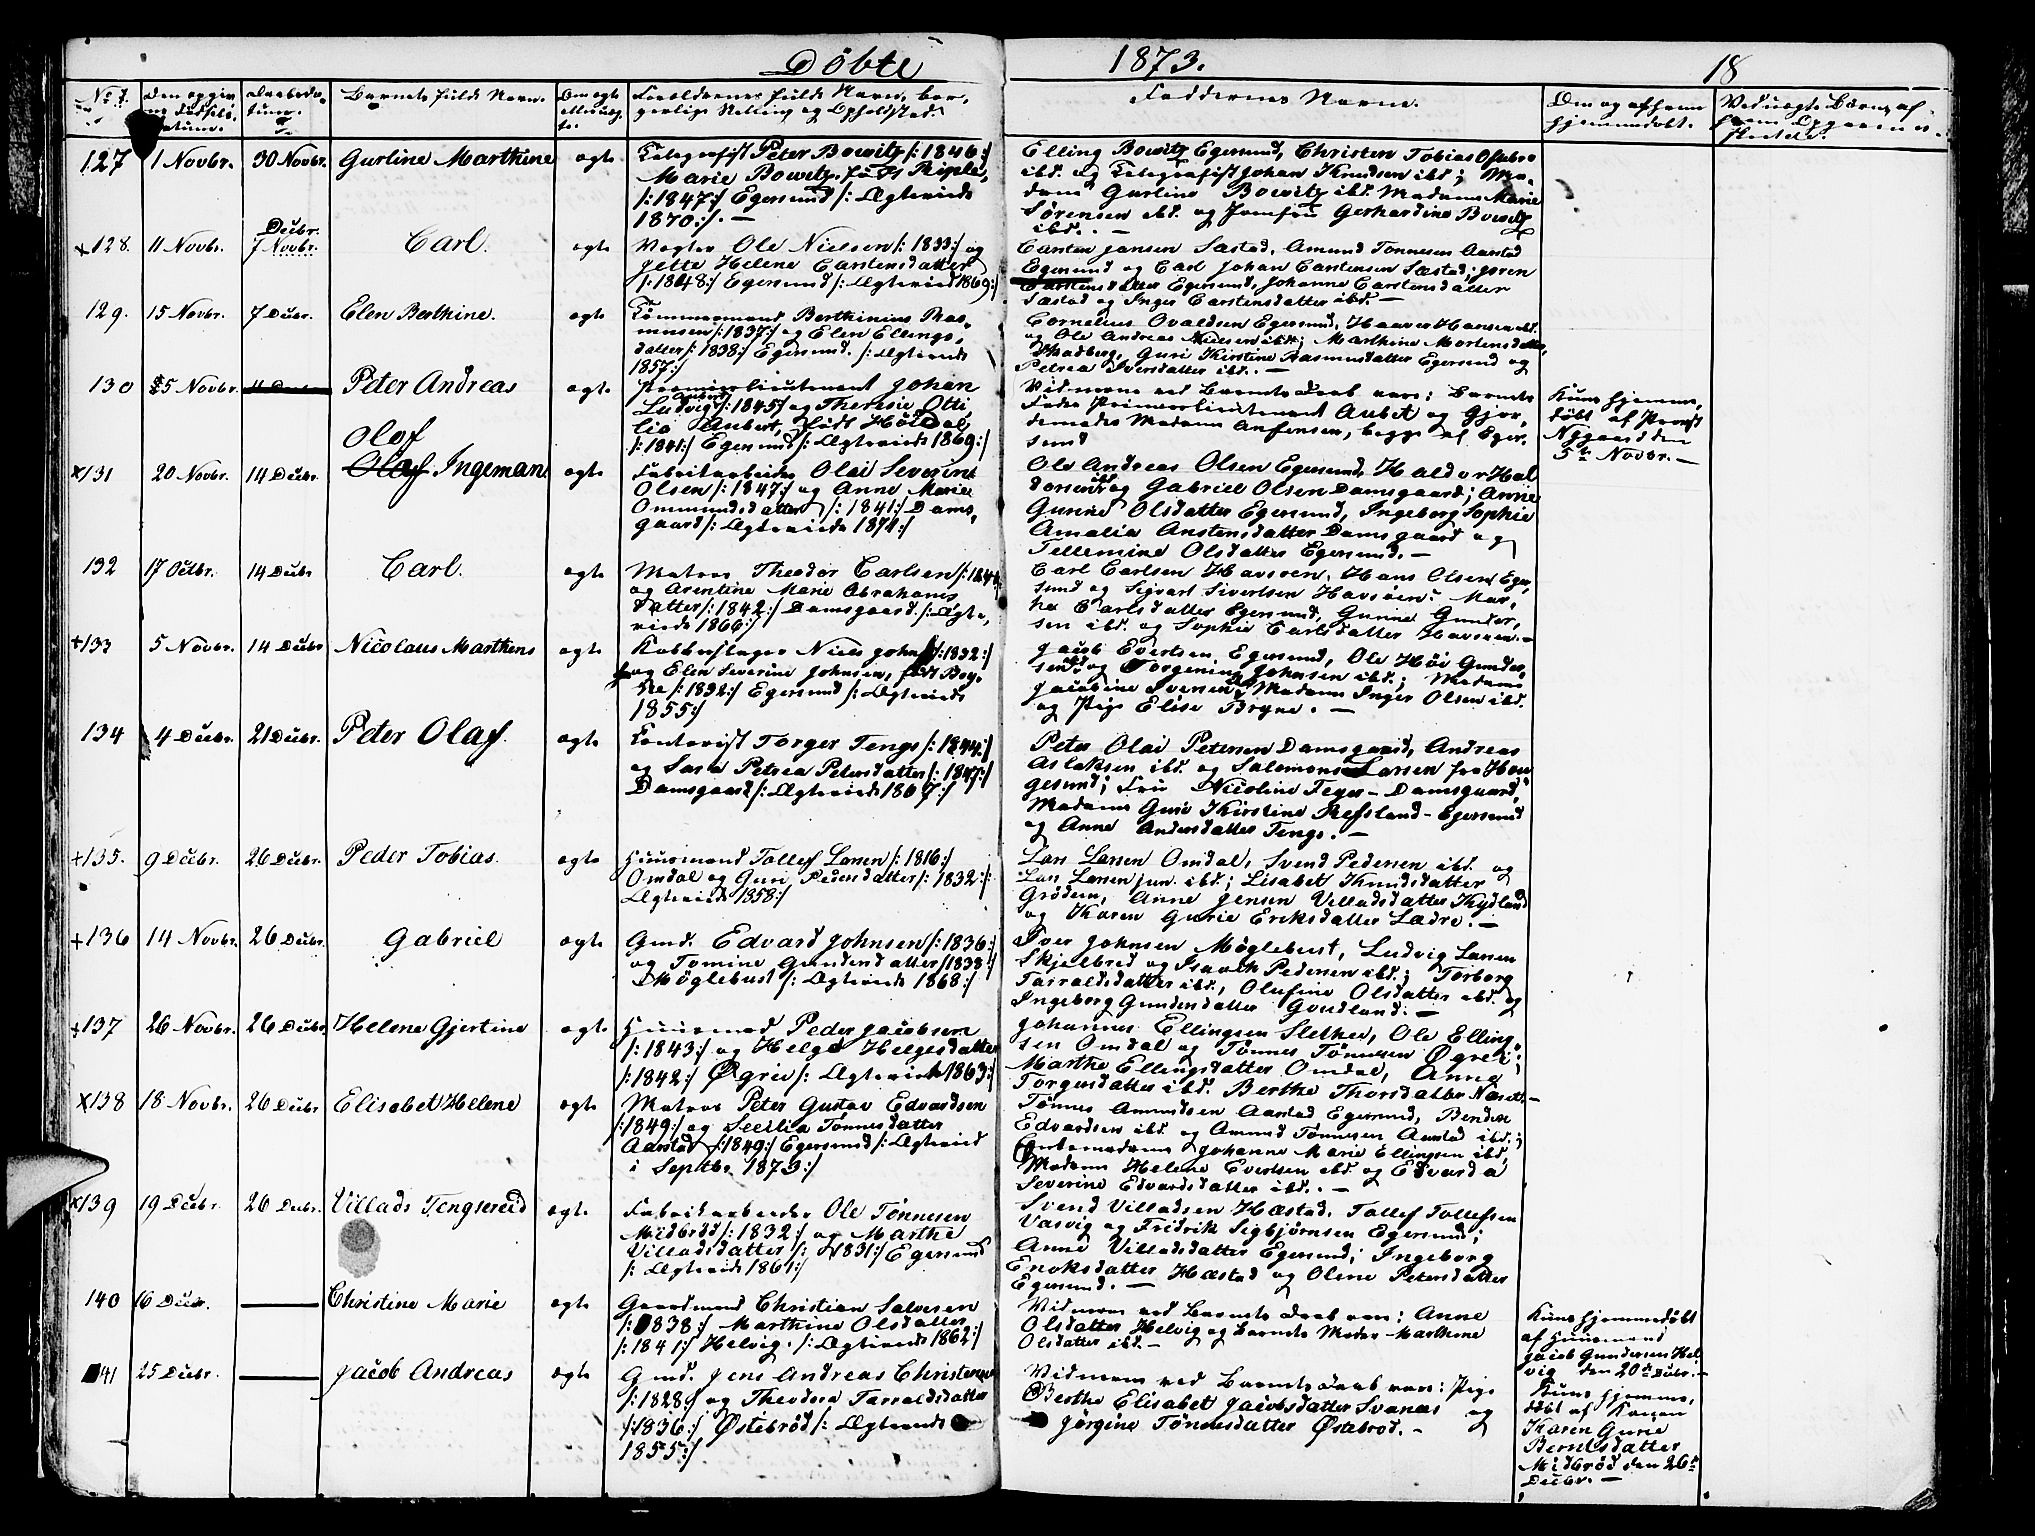 Döbte 1873. 18
No.
Barnets fulde Navn.
Faddernes Navne.
127 1 Novbr. 30 Novbr. Gurline Marthine ægte Telegrafist Peter Bowitz /: 1846 :/
Marie Bowitz, født Riple,
/: 1847 :/ Egersund /: Ægteviede
1870 :/. —
Elling Bowitz Egersund, Christen Tobias
ibd. og Telegrafist Johan Knudsen ibd; Ma-
dam Gurline Bowitz ibd. Madam Marie
Sørensen ibd. og Jomfru Gerhardine Bowitz
ibd. —
128. 11 Novbr. Decbr. 7 Novbr. Carl. ægte Ole Nielsen /: 1833 :/ og
Jette Helene Carstensdatter
/: 1848 :/ Egersund /: Ægteviede 1869 :/
Carsten Jansen Sæstad, Amund Tønnesen Aarstad
Egersund og Carl Johan Carstensen Sæstad; Joren
Carstensdatter Egersund, Johanne Carstensdatter
Sæstad og Inger Carstensdatter ibd. —
129. 15 Novbr. 7 Decbr. Elen Berthine. ægte Tømmermand Berthinius Ras-
mussen /: 1837 :/ og Elen Ellings-
datter /: 1838 :/ Egersund. /: Ægteviede
1857 :/
Cornelius Ovaldsen Egersund, Haaver Hansen ibd.
og Ole Andreas Nielsen ibd; Marthine Mortensdatter
Guri Kirstine Rasmusdatter Egersund og
Petrea Iversdatter ibd. —
130 25 Novbr. Peter Andreas ægte Premierlieutenant Johan
Ludvig Aubert /: 1845 :/ og Theresie Otti-
lie Aubert, født Hölldal
/: 1841 :/ Egersund /: Ægteviede 1869 :/
Vidnerne ved Barnets Daab vare: Barnets
Fader Premierlieutenant Aubert og Gjor-
demoder Madam Anfensen, begge af Eger-
sund
Kuns hjemme-
døbt af Provst
Nygaard den
5te Novbr. —
131 20 Novbr. 14 Decbr. Olaf Ingeman ægte Fabrikarbeider Olai Severin
Olsen /: 1847 :/ og Anne Marie
Ommundsdatter /: 1841 :/ Dams-
gaard /: Ægteviede 1871 :/
Ole Andreas Olsen Egersund, Haldor Hal-
dorsen ibd. og Gabriel Olsen Damsgaard; Anne
Gurine Olsdatter Egersund, Ingeborg Sophie
Amalia Anstensdatter Damsgaard og
Tellemine Olsdatter Egersund. —
132 17 Octbr. 14 Decbr Carl. ægte Matros Theodor Carlsen /: 1844
og Asentine Marie Abrahams-
datter /: 1842 :/ Damsgaard. /: Ægte-
viede 1866 :/
Carl Carlsen Havsøen, Hans Olsen Eger-
sund og Sigvart Sivertsen Havsøen; Mar-
the Carlsdatter Egersund, Gunne Gunder-
sen ibd. og Sophie Carlsdatter Havsøen. —
133 5 Novbr. 14 Decbr Nicolaus Marthens ægte Kobberslager Niels Johnsen /: 1832 :/
og Elen Severine Johnsen, født Bog-
/: 1832 :/ Egersund /: Ægteviede
1855 :/
Jacob Evertsen Egersund, Ole Høi Gunder-
sen ibd. og Torgenius Johnsen ibd.; Madam
Jacobine Svensen Madam Inger Olsen ibd.
og Pige Elise Bryne. —
134 4 Decbr. 21 Decbr. Peter Olaf. ægte Contorist Torger Tengs /: 1844 :/
og Sara Petrea Petersdatter /: 1847 :/
Damsgaard /: Ægteviede 1867 :/
Peter Olai Petersen Damsgaard, Andreas
Aslaksen ibd. og Salomon Larsen fra Hou-
gesund; Fru Nicoline Feyer - Damsgaard,
Madam Guri Kirstine Refsland - Egersund
og Anne Andersdatter Tengs. —
135. 9 Decbr. 26 Decbr. Peder Tobias. ægte Huusmand Tollef Larsen /: 1816 :/
Omdal og Guri Pedersdatter /: 1832 :/
Ægteviede 1858 :/
Lars Larsen Omdal, Svend Pedersen ibd. og
Lars Larsen jun. ibd.; Lisabet Knudsdatter
Grødem, Anne Jensen Villadsdatter Kydland
og Karen Gurie Eriksdatter Lædre. —
136 14 Novbr. 26 Decbr. Gabriel ægte Gmd. Edvard Johnsen /: 1836 :/
og Tomine Gundersdatter /: 1838 :/
Møglebust /: Ægteviede 1868 :/
Iver Johnsen Møglebust, Ludvig Larsen
Skjelbred og Isaach Pedersen ibd.; Torborg
Tarraldsdatter ibd., Olufine Olsdatter ibd. og
Ingeborg Gundersdatter Grudland. —
137 26 Novbr. 26 Decbr. Helene Gjertine ægte Huusmand Peder Jacobsen
/: 1843 :/ og Helge Helgesdatter
/: 1842 :/ Øgrei /: Ægteviede 1863 :/
Johannes Ellingsen Slethei, Ole Elling-
sen Omdal og Tønnes Tønnesen Øgrei;
Marthe Ellingsdatter Omdal, Anne
Torgersdatter ibd. Berthe Thorsdatter
138 18 Novbr. 26 Decbr Elisabet Helene ægte Matros Peter Gustav Edvardsen
/: 1849 :/ og Secilia Tønnesdatter
Aarstad /: 1849 :/ Egersund /: Ægteviede
i Septbr. 1873 :/
Tønnes Amundsen Aarstad Egersund, Bendix
Edvardsen ibd. og Amund Tønnesen Aarstad ibd.;
Johanne Marie Ellingsen ibd.
Madam Helene Evertsen ibd. og Edvarda
Severine Edvardsdatter ibd. —
139 19 Decbr. 26 Decbr. Villads Tengsereid ægte Fabrikarbeider Ole Tønnesen
Midbrød /: 1832 :/ og Marthe
Villadsdatter /: 1831 :/ Egersund
/: Ægteviede 1861 :/
Svend Villadsen Hæstad, Tollef Tollefsen
Vasvig og Fridrik Sigbjørnsen Egersund;
Anne Villadsdatter Egersund; Ingeborg
Eriksdatter Hæstad og Olene Petersdatter
Egersund. —
140 16 Decbr. — Christine Marie ægte Gaardmand Christian Salvesen
/: 1838 :/ Marthine Olsdatter
/: 1841 :/ Helvig. /: Ægteviede 1862 :/
Vidnerne ved Barnets Daab vare: Anne
Olsdatter Helvig og Barnets Moder - Marthine
Olsdatter ibd. —
Kuns hjemmedøbt
af Huusmand
Jacob Gundersen Hel-
vig den 20de Decbr. —
141 25 Decbr. — Jacob Andreas ægte Gmd. Jens Andreas Christensen
/: 1828 :/ og Theodora Tarraldsdatter
/: 1836 :/ Østebrød /: Ægteviede
1855 :/
Vidnerne ved Barnets Daab vare: Pige
Berthe Elisabet Jacobsdatter Svanæs og
Jörgine Tønnesdatter Østebrød. -
Kuns hjemme-
døbt af Konen
Karen Gurie
Berntsdatter
Midbrød den 26de
Decbr. —